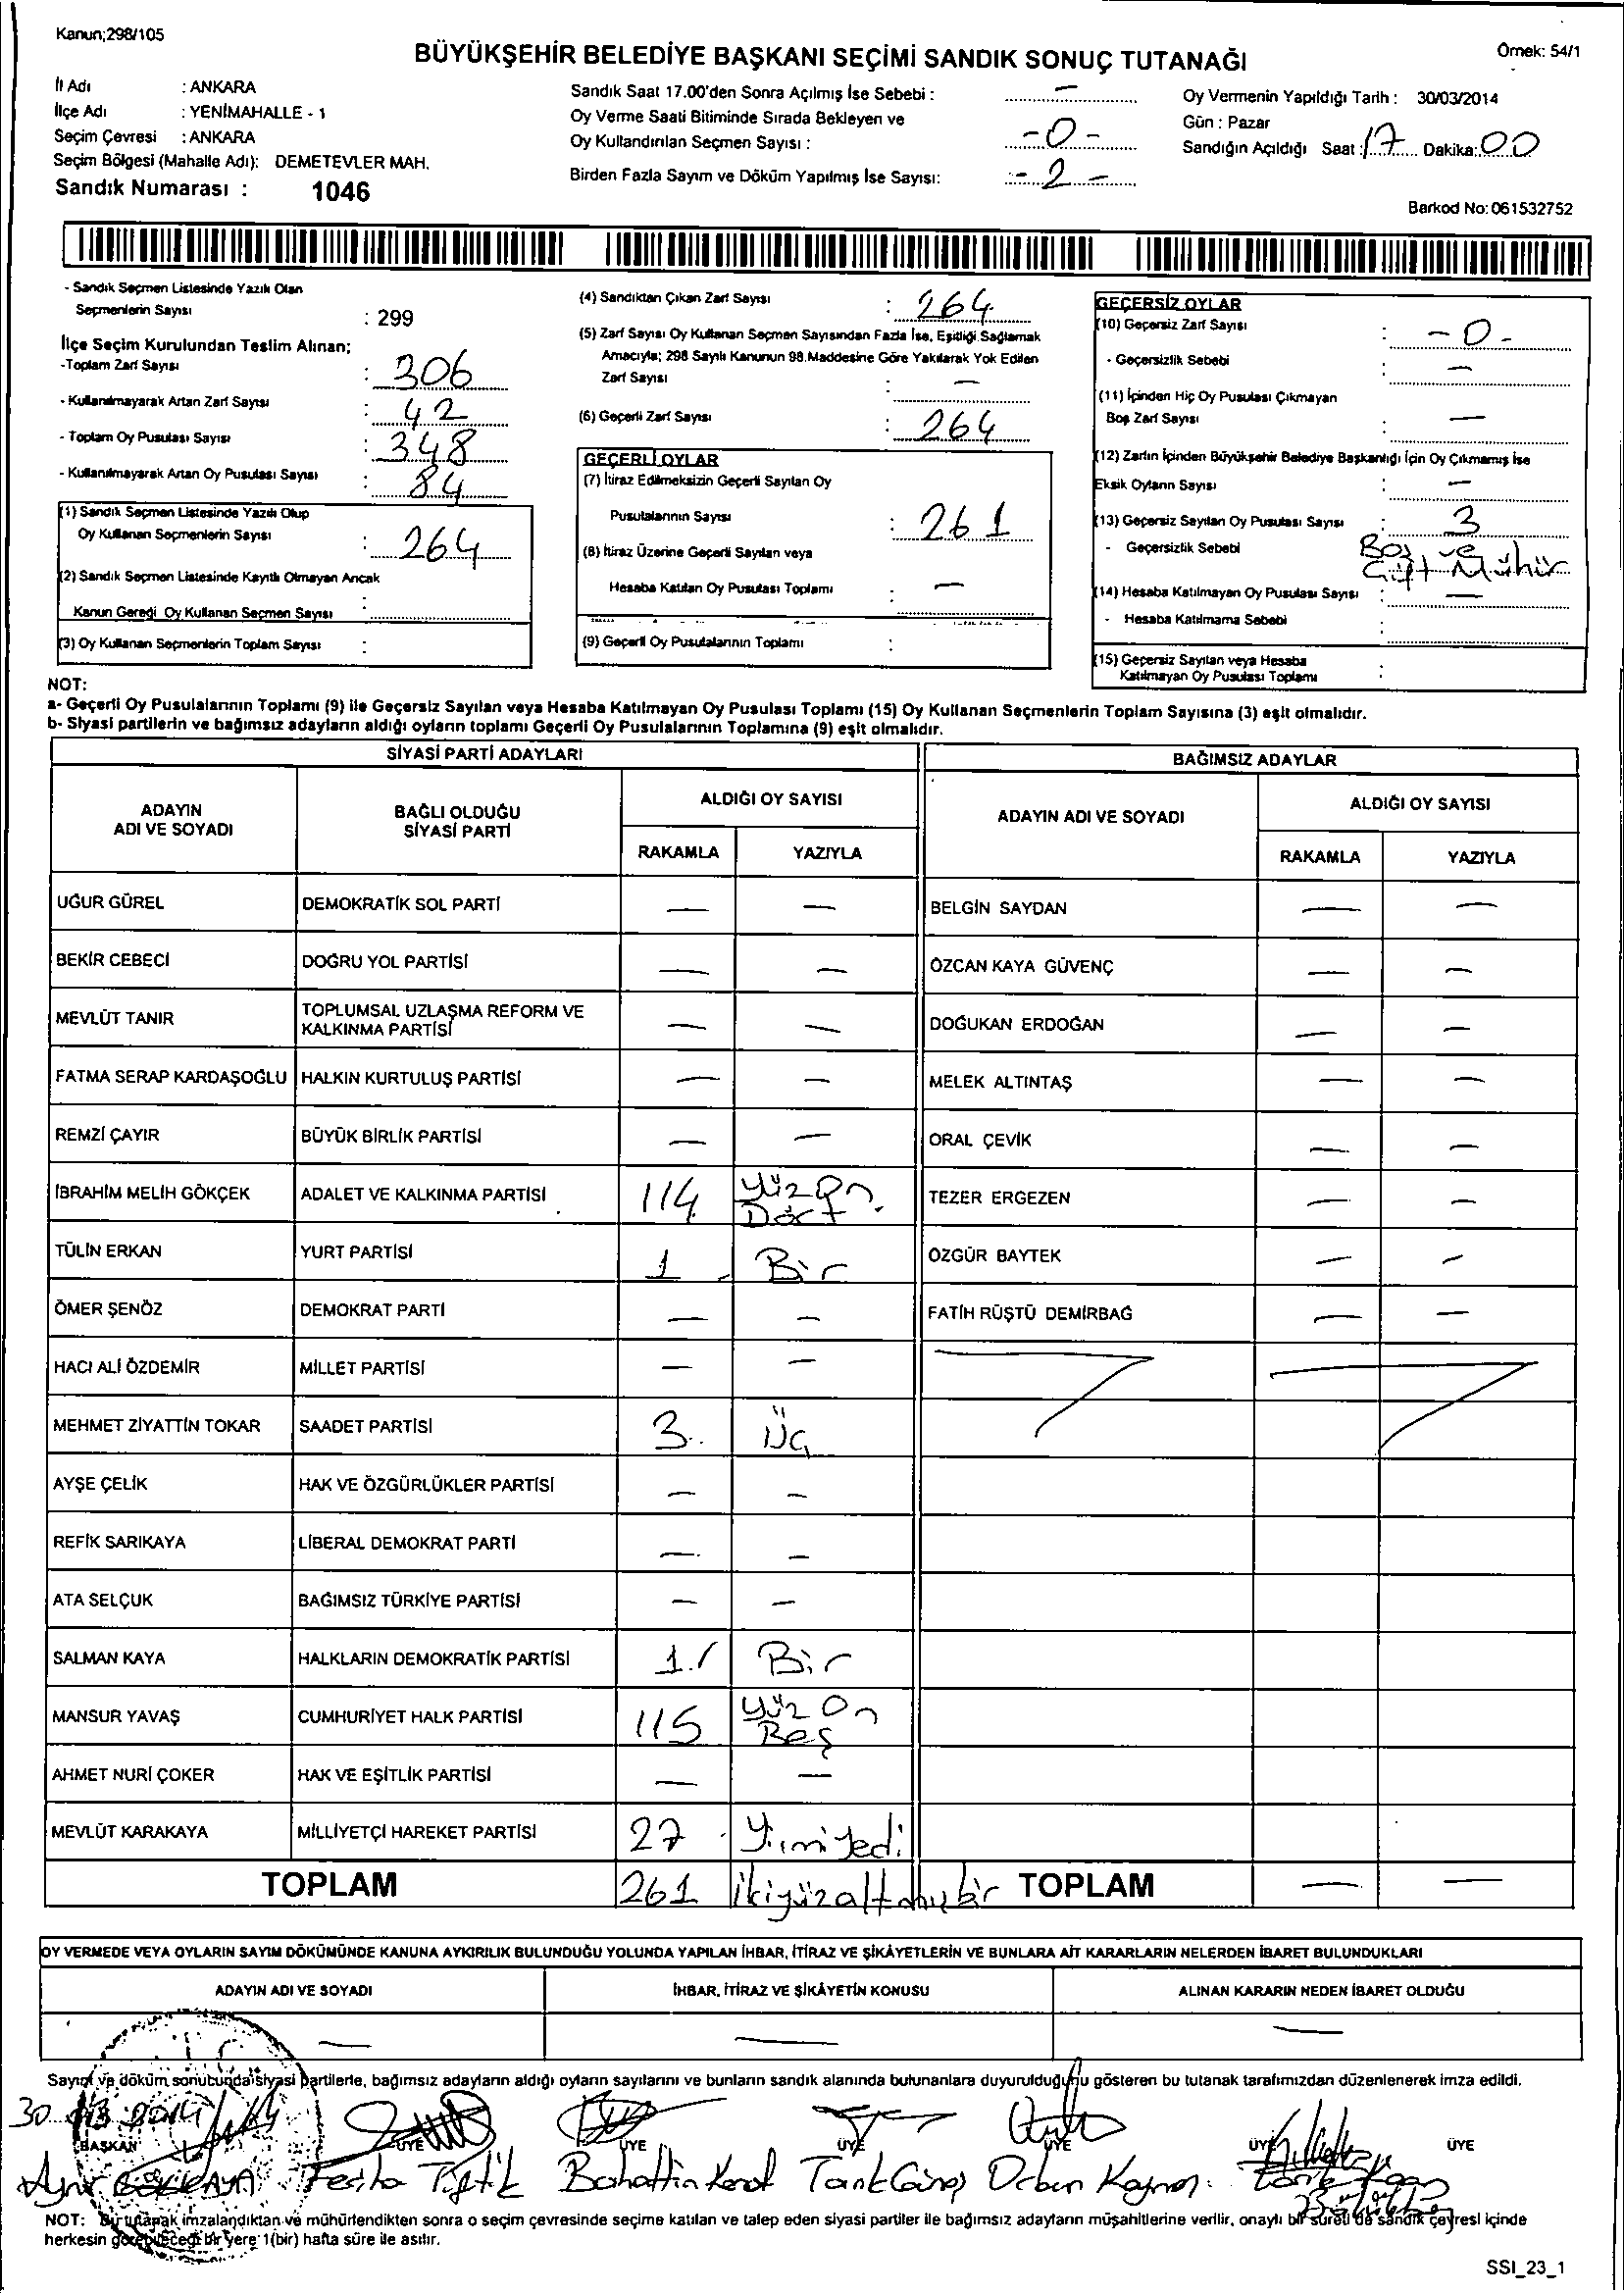 Kanun;298/105
BÜYÜKŞEHİR BELEDİYE BAŞKANI SEÇİMİ SANDIK SONUÇ TUTANAĞI
Örnek: 54/1
İl Adı : ANKARA
İlçe Adı : YENİMAHALLE - 1
Seçim Çevresi : ANKARA
Seçim Bölgesi (Mahalle Adı): DEMETEVLER MAH.
Sandık Numarası : 1046
Sandık Saat 17.00'den Sonra Açılmış İse Sebebi : —
Oy Verme Saati Bitiminde Sırada Bekleyen ve
Oy Kullandırılan Seçmen Sayısı : -0-
Birden Fazla Sayım ve Döküm Yapılmış İse Sayısı: -2-
Oy Vermenin Yapıldığı Tarih : 30/03/2014
Gün : Pazar
Sandığın Açıldığı Saat : 17 Dakika: 00
Barkod No: 061532752
- Sandık Seçmen Listesinde Yazılı Olan
Seçmenlerin Sayısı : 299
İlçe Seçim Kurulundan Teslim Alınan;
-Toplam Zarf Sayısı : 306
- Kullanılmayarak Artan Zarf Sayısı : 42
- Toplam Oy Pusulası Sayısı : 348
- Kullanılmayarak Artan Oy Pusulası Sayısı : 84
(1) Sandık Seçmen Listesinde Yazılı Olup
Oy Kullanan Seçmenlerin Sayısı : 264
(2) Sandık Seçmen Listesinde Kayıtlı Olmayan Ancak
Kanun Gereği Oy Kullanan Seçmen Sayısı :
(3) Oy Kullanan Seçmenlerin Toplam Sayısı :
(4) Sandıktan Çıkan Zarf Sayısı : 264
(5) Zarf Sayısı Oy Kullanan Seçmen Sayısından Fazla İse, Eşitliği Sağlamak
Amacıyla; 298 Sayılı Kanunun 98.Maddesine Göre Yakılarak Yok Edilen
Zarf Sayısı : —
(6) Geçerli Zarf Sayısı : 264
GEÇERLİ OYLAR
(7) İtiraz Edilmeksizin Geçerli Sayılan Oy
Pusulalarının Sayısı : 261
(8) İtiraz Üzerine Geçerli Sayılan veya
Hesaba Katılan Oy Pusulası Toplamı : —
(9) Geçerli Oy Pusulalarının Toplamı :
GEÇERSİZ OYLAR
(10) Geçersiz Zarf Sayısı : -0-
- Geçersizlik Sebebi : —
(11) İçinden Hiç Oy Pusulası Çıkmayan
Boş Zarf Sayısı : —
(12) Zarfın İçinden Büyükşehir Belediye Başkanlığı İçin Oy Çıkmamış İse
Eksik Oyların Sayısı : —
(13) Geçersiz Sayılan Oy Pusulası Sayısı : 3
- Geçersizlik Sebebi : Boş ve
Çift Mühür
(14) Hesaba Katılmayan Oy Pusulası Sayısı : —
- Hesaba Katılmama Sebebi :
(15) Geçersiz Sayılan veya Hesaba
Katılmayan Oy Pusulası Toplamı :
NOT:
a- Geçerli Oy Pusulalarının Toplamı (9) ile Geçersiz Sayılan veya Hesaba Katılmayan Oy Pusulası Toplamı (15) Oy Kullanan Seçmenlerin Toplam Sayısına (3) eşit olmalıdır.
b- Siyasi partilerin ve bağımsız adayların aldığı oyların toplamı Geçerli Oy Pusulalarının Toplamına (9) eşit olmalıdır.
SİYASİ PARTİ ADAYLARI BAĞIMSIZ ADAYLAR
ADAYIN ADI VE SOYADI BAĞLI OLDUĞU SİYASİ PARTİ ALDIĞI OY SAYISI ADAYIN ADI VE SOYADI ALDIĞI OY SAYISI
RAKAMLA YAZIYLA RAKAMLA YAZIYLA
UĞUR GÜREL DEMOKRATİK SOL PARTİ — — BELGİN SAYDAN — —
BEKİR CEBECİ DOĞRU YOL PARTİSİ — — ÖZCAN KAYA GÜVENÇ — —
MEVLÜT TANIR TOPLUMSAL UZLAŞMA REFORM VE KALKINMA PARTİSİ — — DOĞUKAN ERDOĞAN — —
FATMA SERAP KARDAŞOĞLU HALKIN KURTULUŞ PARTİSİ — — MELEK ALTINTAŞ — —
REMZİ ÇAYIR BÜYÜK BİRLİK PARTİSİ — — ORAL ÇEVİK — —
İBRAHİM MELİH GÖKÇEK ADALET VE KALKINMA PARTİSİ 114 Yüz On Dört. TEZER ERGEZEN — —
TÜLİN ERKAN YURT PARTİSİ 1 Bir ÖZGÜR BAYTEK — —
ÖMER ŞENÖZ DEMOKRAT PARTİ — — FATİH RÜŞTÜ DEMİRBAĞ — —
HACI ALİ ÖZDEMİR MİLLET PARTİSİ — —
MEHMET ZİYATTİN TOKAR SAADET PARTİSİ 3 Üç
AYŞE ÇELİK HAK VE ÖZGÜRLÜKLER PARTİSİ — —
REFİK SARIKAYA LİBERAL DEMOKRAT PARTİ — —
ATA SELÇUK BAĞIMSIZ TÜRKİYE PARTİSİ — —
SALMAN KAYA HALKLARIN DEMOKRATİK PARTİSİ 1 Bir
MANSUR YAVAŞ CUMHURİYET HALK PARTİSİ 115 Yüz On Beş
AHMET NURİ ÇOKER HAK VE EŞİTLİK PARTİSİ — —
MEVLÜT KARAKAYA MİLLİYETÇİ HAREKET PARTİSİ 27 Yirmi Yedi
TOPLAM 261 İkiyüzaltmışbir TOPLAM — —
OY VERMEDE VEYA OYLARIN SAYIM DÖKÜMÜNDE KANUNA AYKIRILIK BULUNDUĞU YOLUNDA YAPILAN İHBAR, İTİRAZ VE ŞİKÂYETLERİN VE BUNLARA AİT KARARLARIN NELERDEN İBARET BULUNDUKLARI
ADAYIN ADI VE SOYADI İHBAR, İTİRAZ VE ŞİKÂYETİN KONUSU ALINAN KARARIN NEDEN İBARET OLDUĞU
— — —
Sayım ve döküm sonucunda siyasi partilerle, bağımsız adayların aldığı oyların sayılarını ve bunların sandık alanında bulunanlara duyurulduğunu gösteren bu tutanak tarafımızdan düzenlenerek imza edildi.
30.03.2014
BAŞKAN ÜYE ÜYE ÜYE ÜYE ÜYE ÜYE
Feriha Tiftik Bahattin Tarık Güneş Orhan
NOT: Bu tutanak imzalandıktan ve mühürlendikten sonra o seçim çevresinde seçime katılan ve talep eden siyasi partiler ile bağımsız adayların müşahitlerine verilir, onaylı bir sureti de sandık çevresi içinde
herkesin görebileceği bir yere 1(bir) hafta süre ile asılır.
SSI_23_1